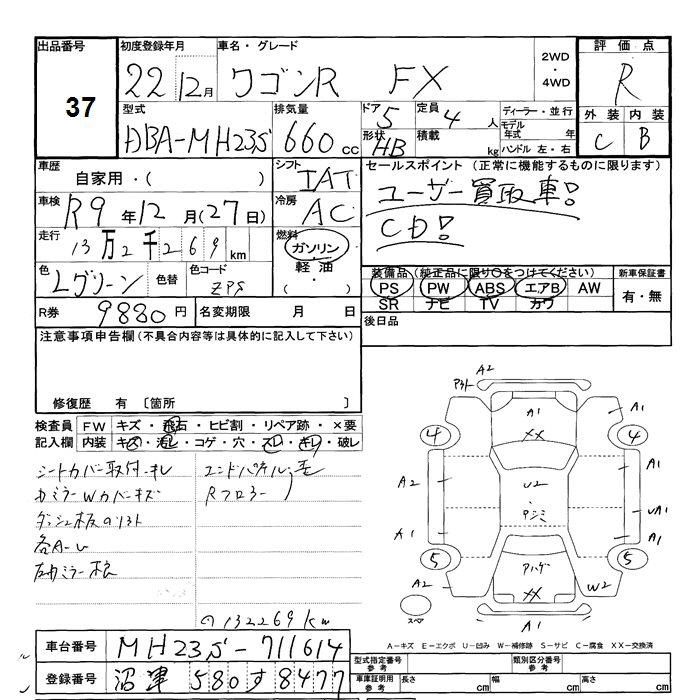 出品番号
37
初度登録年月
22 12月
車名・グレード
ワゴンR FX
2WD
・
4WD
評価点
R
外装 内装
C B
型式
DBA-MH23S
排気量
660 cc
ドア
5
形状
HB
定員
4 人
積載
kg
ディーラー・並行
モデル
年式 年
ハンドル 左・右
車歴
自家用・( )
シフト
IAT
車検
R9年12月(27日)
冷房
AC
走行
13万2千269km
燃料
ガソリン
軽油
( ・ )
色
Lグリーン
色替
色コード
ZPS
セールスポイント (正常に機能するものに限ります)
ユーザー買取車!
CD!
装備品 (純正品に限り○をつけてください)
PS PW ABS エアB AW
SR ナビ TV カワ
新車保証書
有・無
R券
9880円
名変期限 月 日
後日品
注意事項申告欄(不具合内容等は具体的に記入して下さい)
修復歴 有 〔箇所 〕
検査員 FW キズ・飛石・ヒビ割・リペア跡・×要
記入欄 内装 キズ・汚レ・コゲ・穴・スレ・キレ・破レ
シートカバー取付 キレ
カミラーWカバーキズ
ダッシュ板のリ
各A-U
右カミラー
エンドパネル
Rフロアー
132269km
A2
A1
XX
4
4
A1
A1
A2
U2
UA1
A1
A1
5
5
A2
XX
W2
スペア
A1
A-キズ E-エクボ U-凹み W-補修跡 S-サビ C-腐食 XX-交換済
車台番号
MH23S-711614
登録番号
沼津 580 す 8477
型式指定番号
参考
類別区分番号
参考
車庫証明用
参考
長さ cm
幅 cm
高さ cm